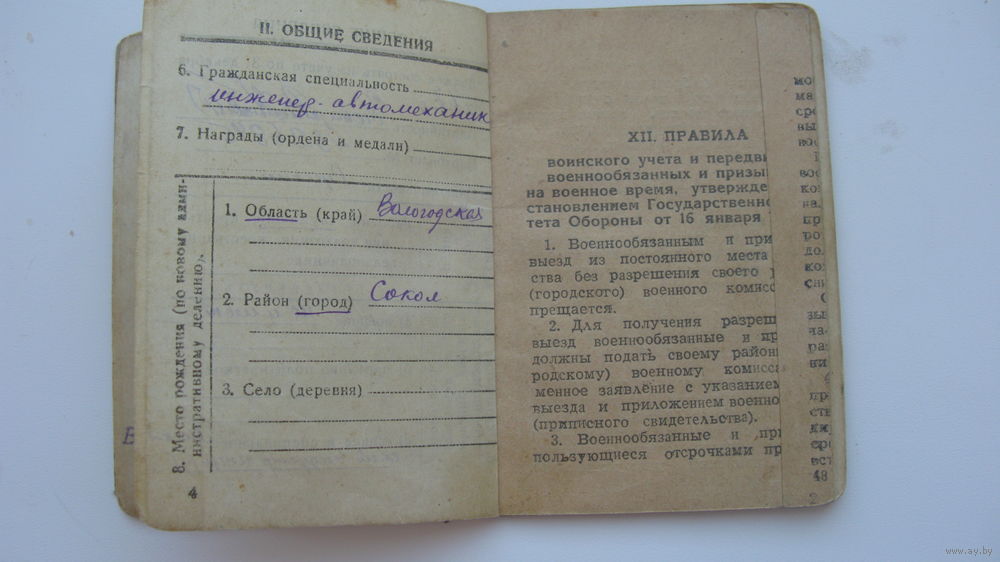 II. ОБЩИЕ СВЕДЕНИЯ
6. Гражданская специальность
инженер-автомеханик
7. Награды (ордена и медали)
8. Место рождения (по новому адми-
нистративному делению).
1. Область (край) Вологодская
2. Район (город) Сокол
3. Село (деревня)
4
XII. ПРАВИЛА
воинского учета и передви
военнообязанных и призы
на военное время, утвержде
становлением Государственно
тета Обороны от 16 января
1. Военнообязанным и при
выезд из постоянного места
ства без разрешения своего р
(городского) военного комисс
прещается.
2. Для получения разреш
выезд военнообязанные и пр
должны подать своему район
родскому) военному комисса
менное заявление с указанием
выезда и приложением военно
(приписного свидетельства).
3. Военнообязанные и при
пользующиеся отсрочками пр
мо
ма
сре
вы
вос
воо
ко
на
пр
ро
до
ко
сни
С
зы
на
ра
ни
пр
ств
ди
сро
вст
48
2
В
www.ay.by